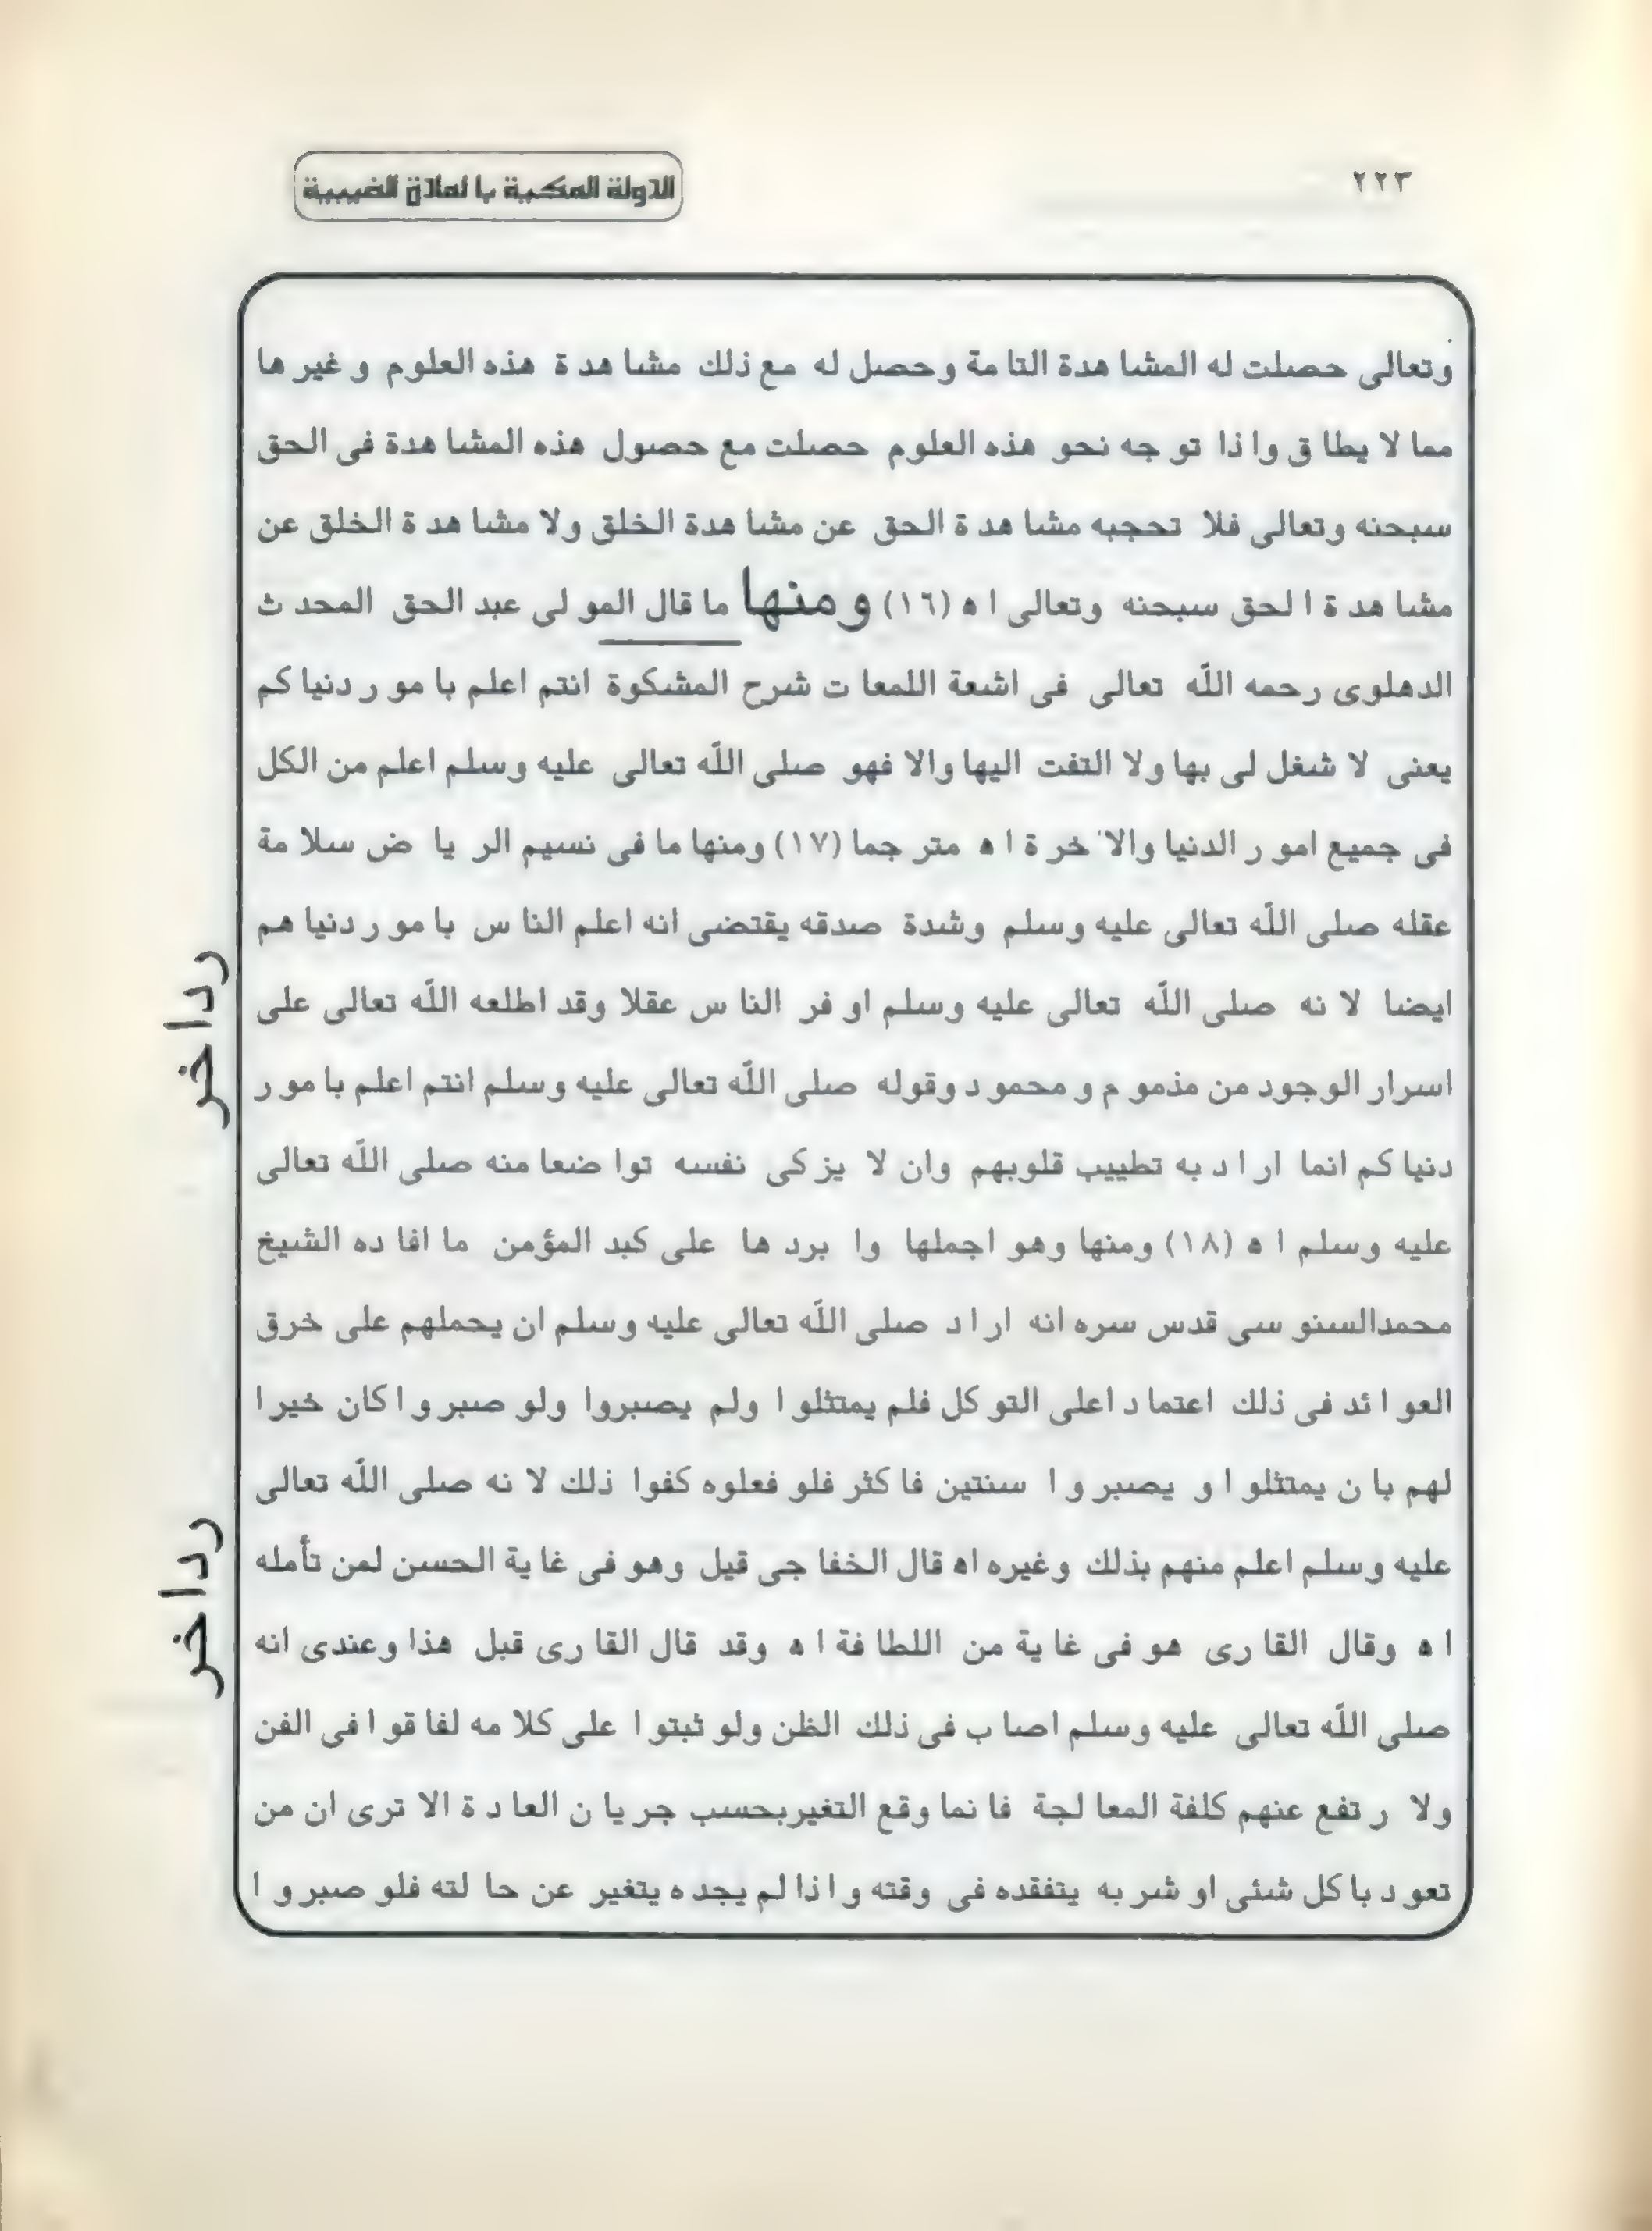 ٢٢٣
الدولة المكية با لمادة الغيبية
وتعالى حصلت له المشا هدة التا مة وحصل له مع ذلك مشا هد ة هذه العلوم و غير ها
مما لا يطا ق وا ذا تو جه نحو هذه العلوم حصلت مع حصول هذه المشا هدة فى الحق
سبحنه وتعالى فلا تحجبه مشا هد ة الحق عن مشا هدة الخلق ولا مشا هد ة الخلق عن
مشا هد ة ا لحق سبحنه وتعالى ا ه (١٦) ومنها ما قال المو لى عبد الحق المحد ث
الدهلوى رحمه اللّه تعالى فى اشعة اللمعا ت شرح المشكوة انتم اعلم با مو ر دنيا كم
يعنى لا شغل لى بها ولا التفت اليها والا فهو صلى اللّه تعالى عليه وسلم اعلم من الكل
فى جميع امو ر الدنيا والا خر ة ا ه متر جما (١٧) ومنها ما فى نسيم الر يا ض سلا مة
عقله صلى اللّه تعالى عليه وسلم وشدة صدقه يقتضى انه اعلم النا س با مو ر دنيا هم
ايضا لا نه صلى اللّه تعالى عليه وسلم او فر النا س عقلا وقد اطلعه اللّه تعالى على
اسرار الوجود من مذمو م و محمو د وقوله صلى اللّه تعالى عليه وسلم انتم اعلم با مو ر
دنيا كم انما ار ا د به تطييب قلوبهم وان لا يز كى نفسه توا ضعا منه صلى اللّه تعالى
عليه وسلم ا ه (١٨) ومنها وهو اجملها وا برد ها على كبد المؤمن ما افا ده الشيخ
محمدالسنو سى قدس سره انه ار ا د صلى اللّه تعالى عليه وسلم ان يحملهم على خرق
العو ا ئد فى ذلك اعتما د اعلى التو كل فلم يمتثلو ا ولم يصبروا ولو صبر و ا كان خيرا
لهم با ن يمتثلو ا و يصبر و ا سنتين فا كثر فلو فعلوه كفوا ذلك لا نه صلى اللّه تعالى
عليه وسلم اعلم منهم بذلك وغيره اه قال الخفا جى قيل وهو فى غا ية الحسن لمن تأمله
ا ه وقال القا رى هو فى غا ية من اللطا فة ا ه وقد قال القا رى قبل هذا وعندى انه
صلى اللّه تعالى عليه وسلم اصا ب فى ذلك الظن ولو ثبتو ا على كلا مه لفا قو ا فى الفن
ولا ر تفع عنهم كلفة المعا لجة فا نما وقع التغيربحسب جر يا ن العا د ة الا ترى ان من
تعو د با كل شئى او شر به يتفقده فى وقته و ا ذا لم يجد ه يتغير عن حا لته فلو صبر و ا
رد اخر
رد اخر